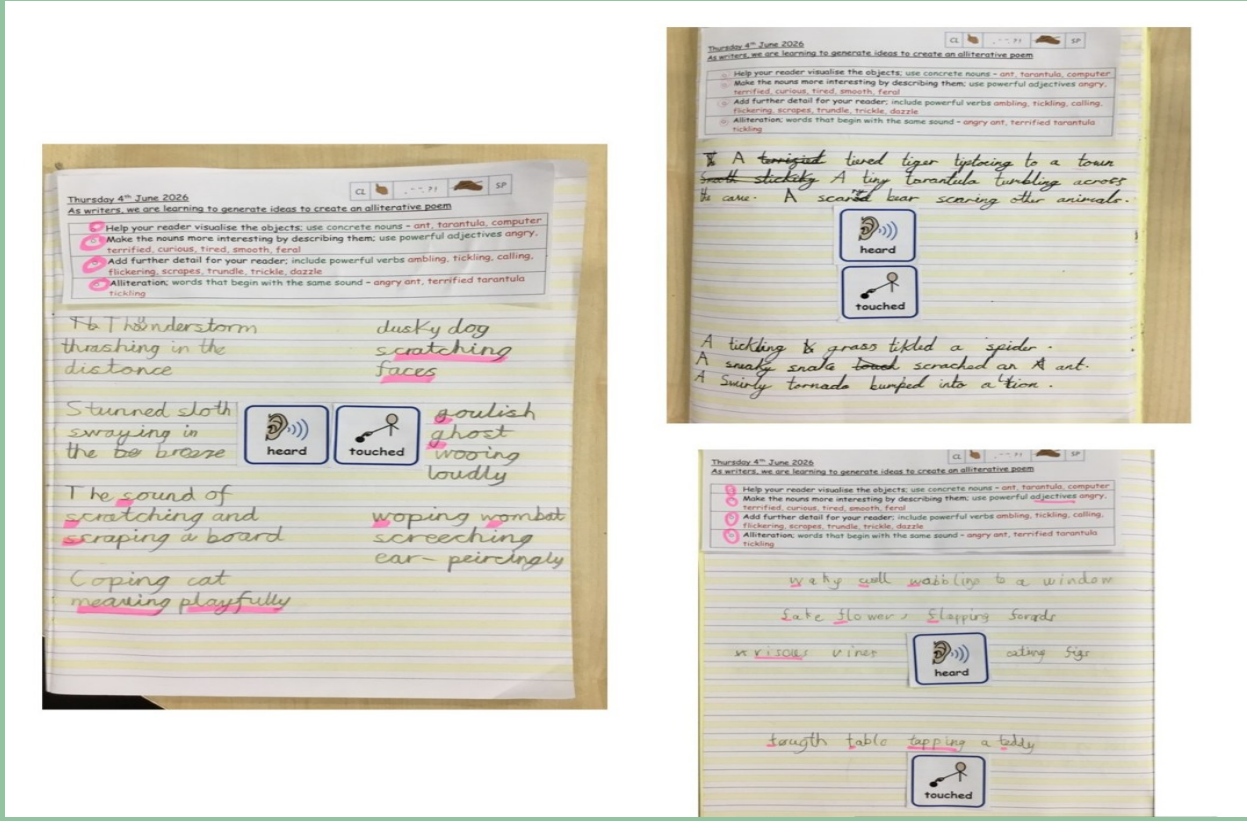 Thursday 4th June 2026
As writers, we are learning to generate ideas to create an alliterative poem
CL
. - - , ? !
SP
Help your reader visualise the objects; use concrete nouns - ant, tarantula, computer
Make the nouns more interesting by describing them; use powerful adjectives angry,
terrified, curious, tired, smooth, feral
Add further detail for your reader; include powerful verbs ambling, tickling, calling,
flickering, scrapes, trundle, trickle, dazzle
Alliteration; words that begin with the same sound - angry ant, terrified tarantula
tickling
Thunderstorm
thrashing in the
distance
Stunned sloth
swaying in
the breeze
The sound of
scratching and
scraping a board
Coping cat
meawing playfully
heard
touched
dusky dog
scratching
faces
goulish
ghost
wooing
loudly
woping wombat
screeching
ear-peircingly
Thursday 4th June 2026
As writers, we are learning to generate ideas to create an alliterative poem
CL
. - - , ? !
SP
Help your reader visualise the objects; use concrete nouns - ant, tarantula, computer
Make the nouns more interesting by describing them; use powerful adjectives angry,
terrified, curious, tired, smooth, feral
Add further detail for your reader; include powerful verbs ambling, tickling, calling,
flickering, scrapes, trundle, trickle, dazzle
Alliteration; words that begin with the same sound - angry ant, terrified tarantula
tickling
A tiered tiger tiptoeing to a town
A tiny tarantula tumbling across
the cave. A bear scaring other animals.
heard
touched
A tickling grass tikled a spider.
A sneaky snake scrached an ant.
A Swirly tornado bumped into a lion.
Thursday 4th June 2026
As writers, we are learning to generate ideas to create an alliterative poem
CL
SP
Help your reader visualise the objects; use concrete nouns - ant, tarantula, computer
Make the nouns more interesting by describing them; use powerful adjectives angry,
terrified, curious, tired, smooth, feral
Add further detail for your reader; include powerful verbs ambling, tickling, calling,
flickering, scrapes, trundle, trickle, dazzle
Alliteration; words that begin with the same sound - angry ant, terrified tarantula
tickling
waky wall wabbling to a window
fake flowers flapping forads
vines eating figs
heard
tougth table tapping a teddy
touched